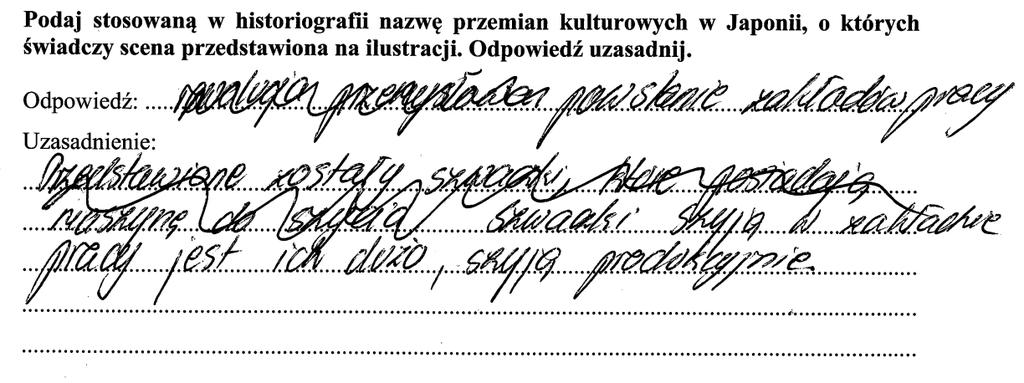 Podaj stosowaną w historiografii nazwę przemian kulturowych w Japonii, o których
świadczy scena przedstawiona na ilustracji. Odpowiedź uzasadnij.
Odpowiedź: rewolucja przemysłowa powstanie zakładów pracy
Uzasadnienie:
Przedstawione zostały szwaczki, które posiadają
maszynę do szycia szwaczki szyją w zakładzie
pracy jest ich dużo, szyją produkcyjnie.